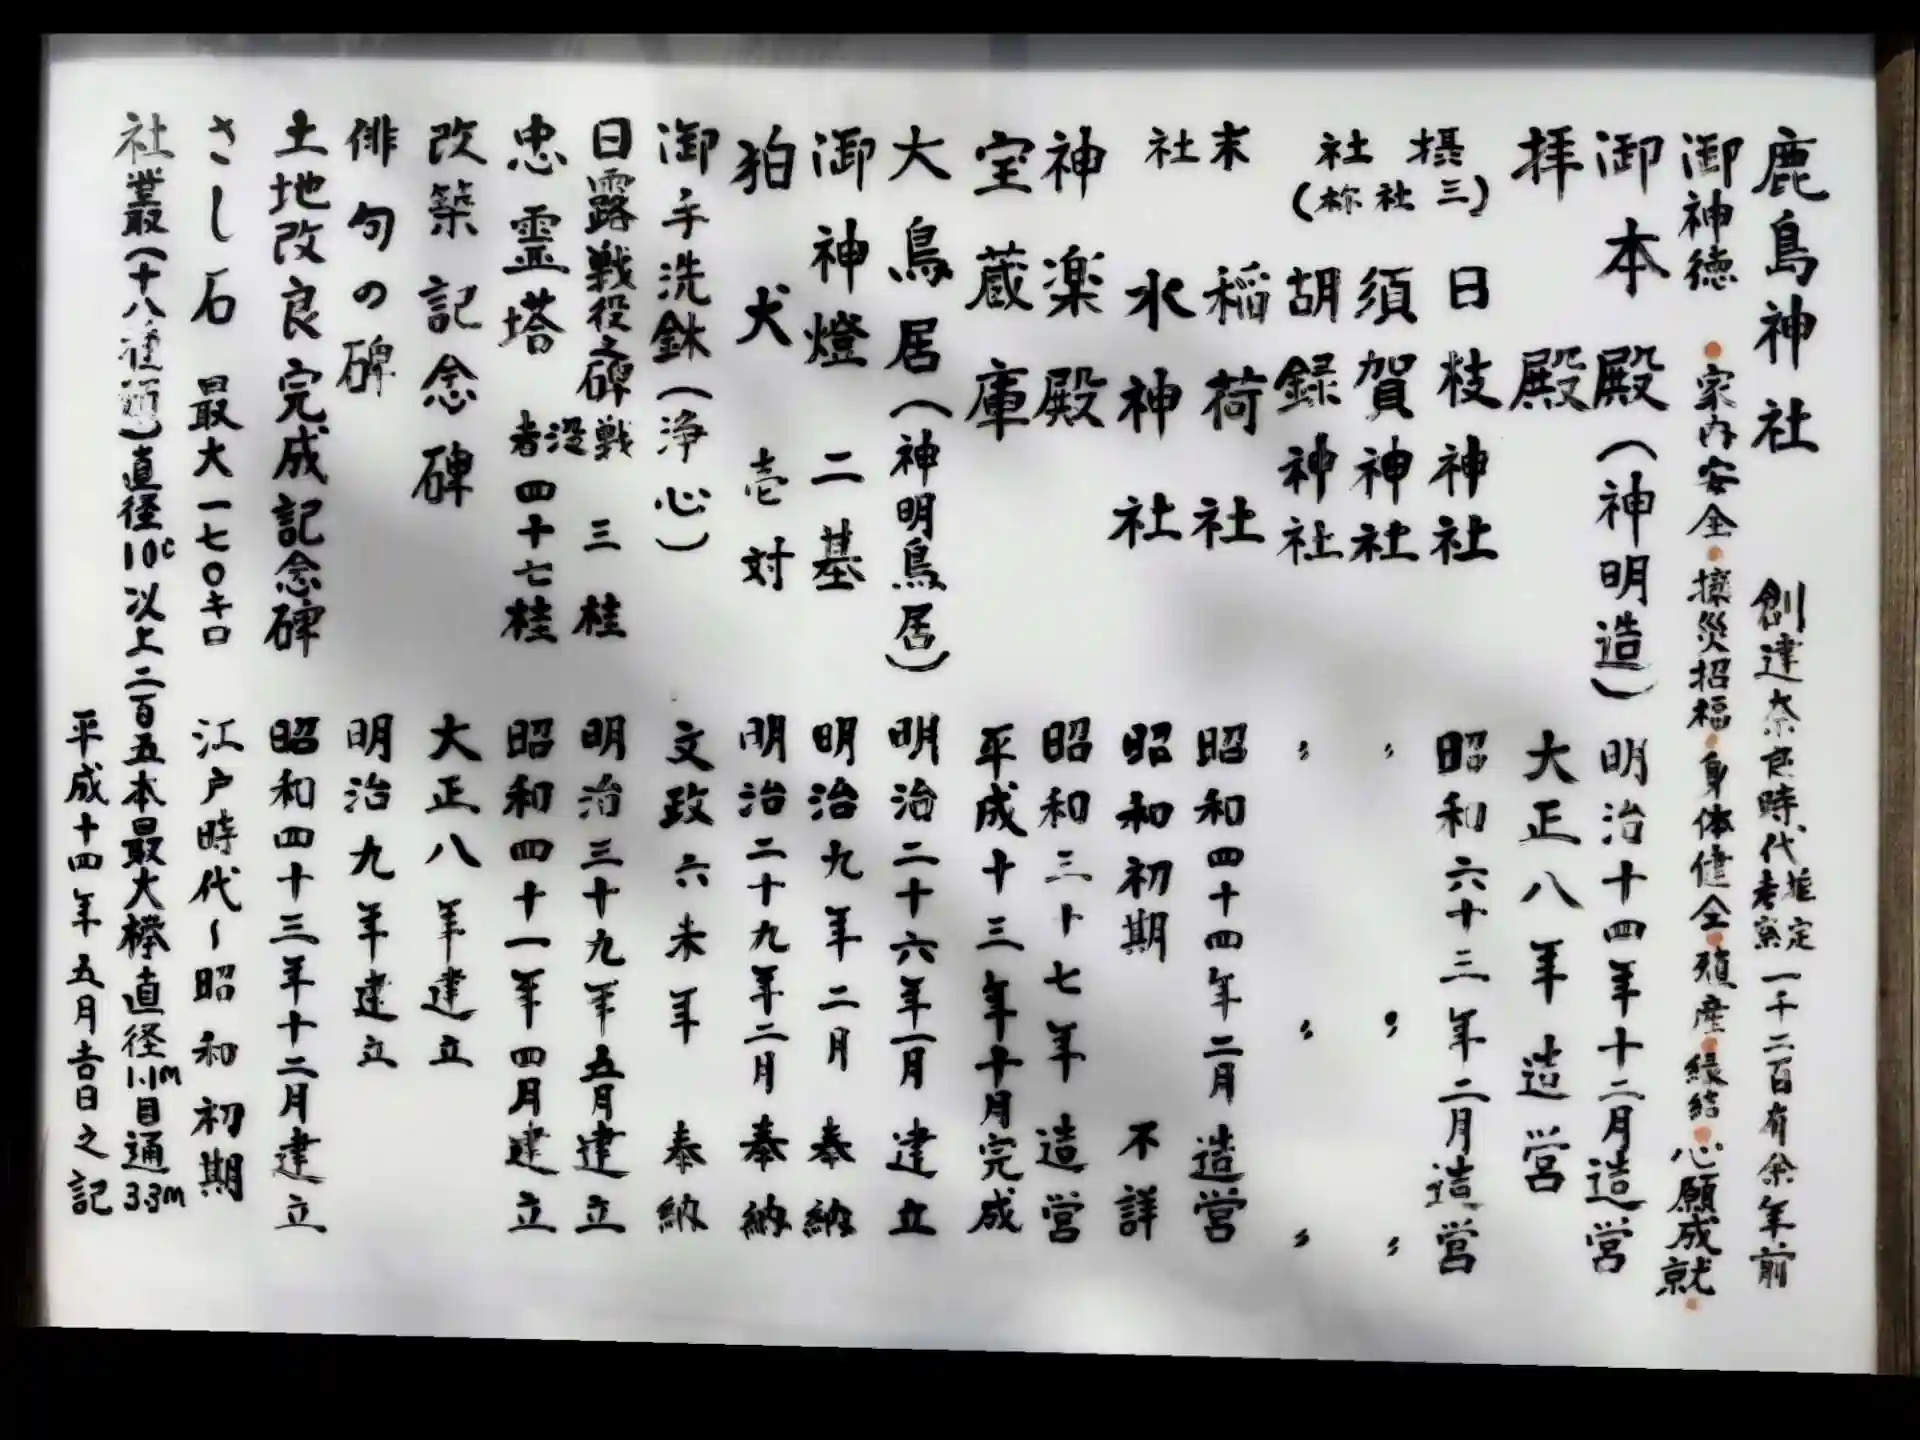 鹿島神社 創建奈良時代推定考案一千二百有余年前
御神徳 ・家内安全・攘災招福・身体健全・殖産・縁結・心願成就・
御本殿(神明造)明治十四年十二月造営
拝殿 大正八年造営
摂社(三社祢) 日枝神社 昭和六十三年二月造営
須賀神社 〃 〃 〃
胡録神社 〃 〃 〃
末社 稲荷社 昭和四十四年二月造営
水神社 昭和初期 不詳
神楽殿 昭和三十七年造営
宝蔵庫 平成十三年十月完成
大鳥居(神明鳥居) 明治二十六年一月建立
御神燈二基 明治九年二月奉納
狛犬壱対 明治二十九年二月奉納
御手洗鉢(浄心) 文政六未年奉納
日露戦役之碑 三桂 明治三十九年五月建立
忠霊塔 戦没者四十七桂 昭和四十一年四月建立
改築記念碑 大正八年建立
俳句の碑 明治九年建立
土地改良完成記念碑 昭和四十三年十二月建立
さし石 最大一七〇キロ 江戸時代~昭和初期
社叢(十八種類)直径10c以上二百五本最大欅直径1.1m目通3.3m
平成十四年五月吉日之記